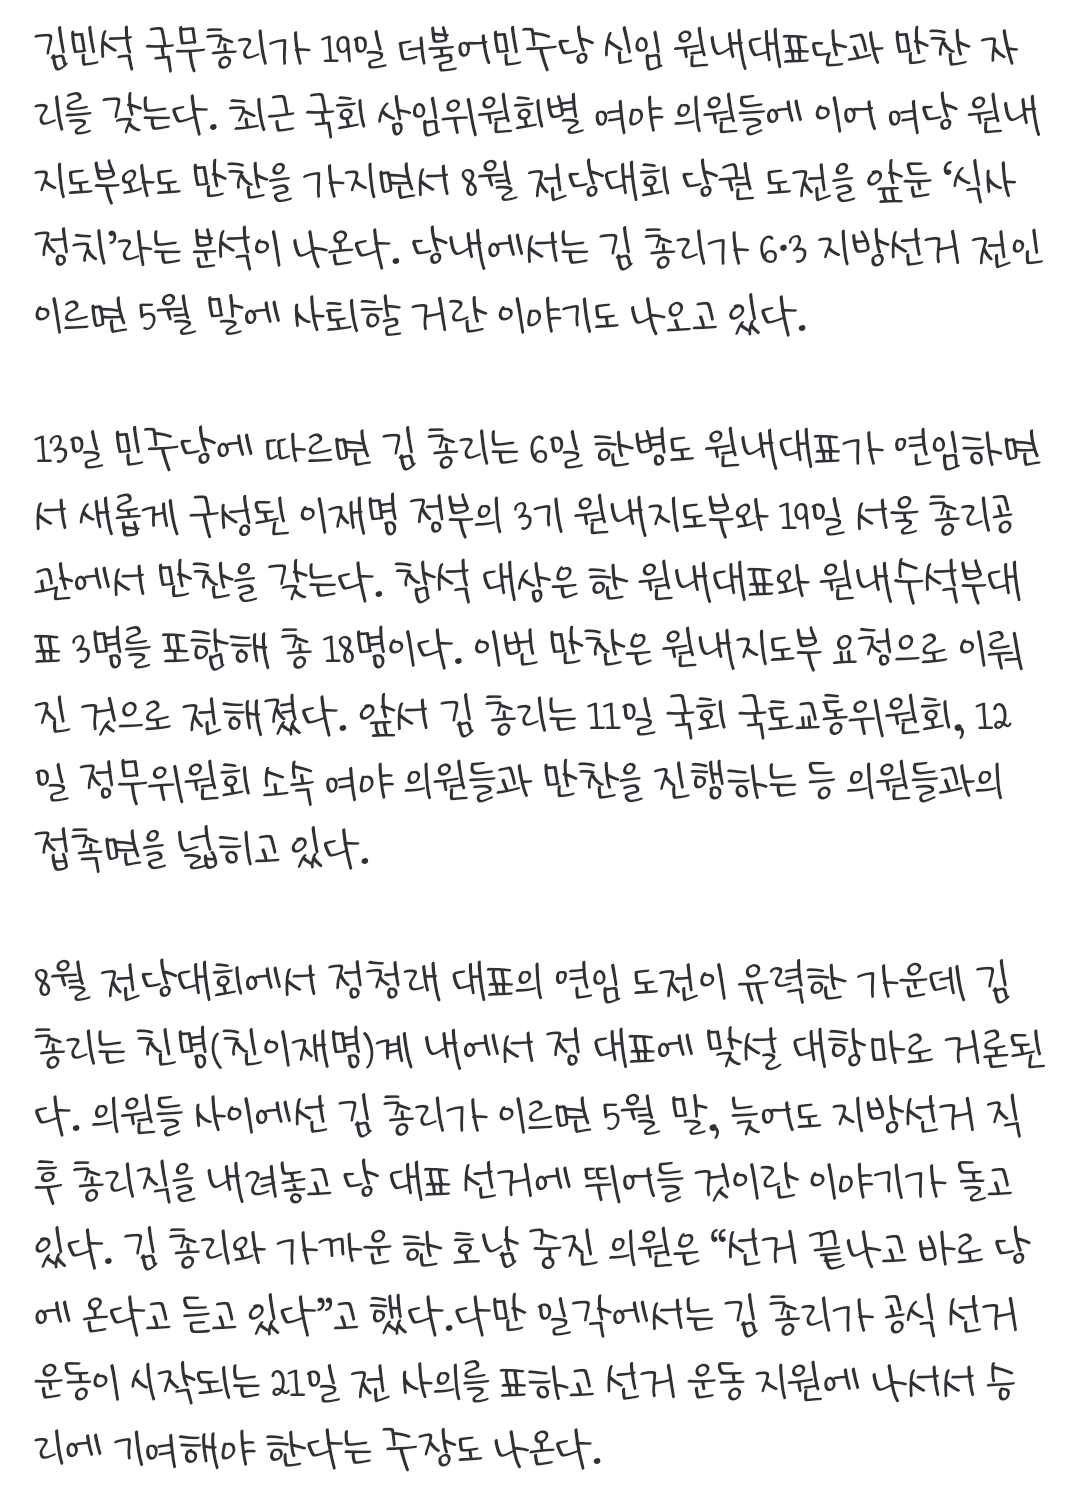 김민석 국무총리가 19일 더불어민주당 신임 원내대표단과 만찬 자
리를 갖는다. 최근 국회 상임위원회별 여야 의원들에 이어 여당 원내
지도부와도 만찬을 가지면서 8월 전당대회 당권 도전을 앞둔 ‘식사
정치’라는 분석이 나온다. 당내에서는 김 총리가 6·3 지방선거 전인
이르면 5월 말에 사퇴할 거란 이야기도 나오고 있다.
13일 민주당에 따르면 김 총리는 6일 한병도 원내대표가 연임하면
서 새롭게 구성된 이재명 정부의 3기 원내지도부와 19일 서울 총리공
관에서 만찬을 갖는다. 참석 대상은 한 원내대표와 원내수석부대
표 3명을 포함해 총 18명이다. 이번 만찬은 원내지도부 요청으로 이뤄
진 것으로 전해졌다. 앞서 김 총리는 11일 국회 국토교통위원회, 12
일 정무위원회 소속 여야 의원들과 만찬을 진행하는 등 의원들과의
접촉면을 넓히고 있다.
8월 전당대회에서 정청래 대표의 연임 도전이 유력한 가운데 김
총리는 친명(친이재명)계 내에서 정 대표에 맞설 대항마로 거론된
다. 의원들 사이에선 김 총리가 이르면 5월 말, 늦어도 지방선거 직
후 총리직을 내려놓고 당 대표 선거에 뛰어들 것이란 이야기가 돌고
있다. 김 총리와 가까운 한 호남 중진 의원은 “선거 끝나고 바로 당
에 온다고 듣고 있다”고 했다.다만 일각에서는 김 총리가 공식 선거
운동이 시작되는 21일 전 사의를 표하고 선거 운동 지원에 나서서 승
리에 기여해야 한다는 주장도 나온다.